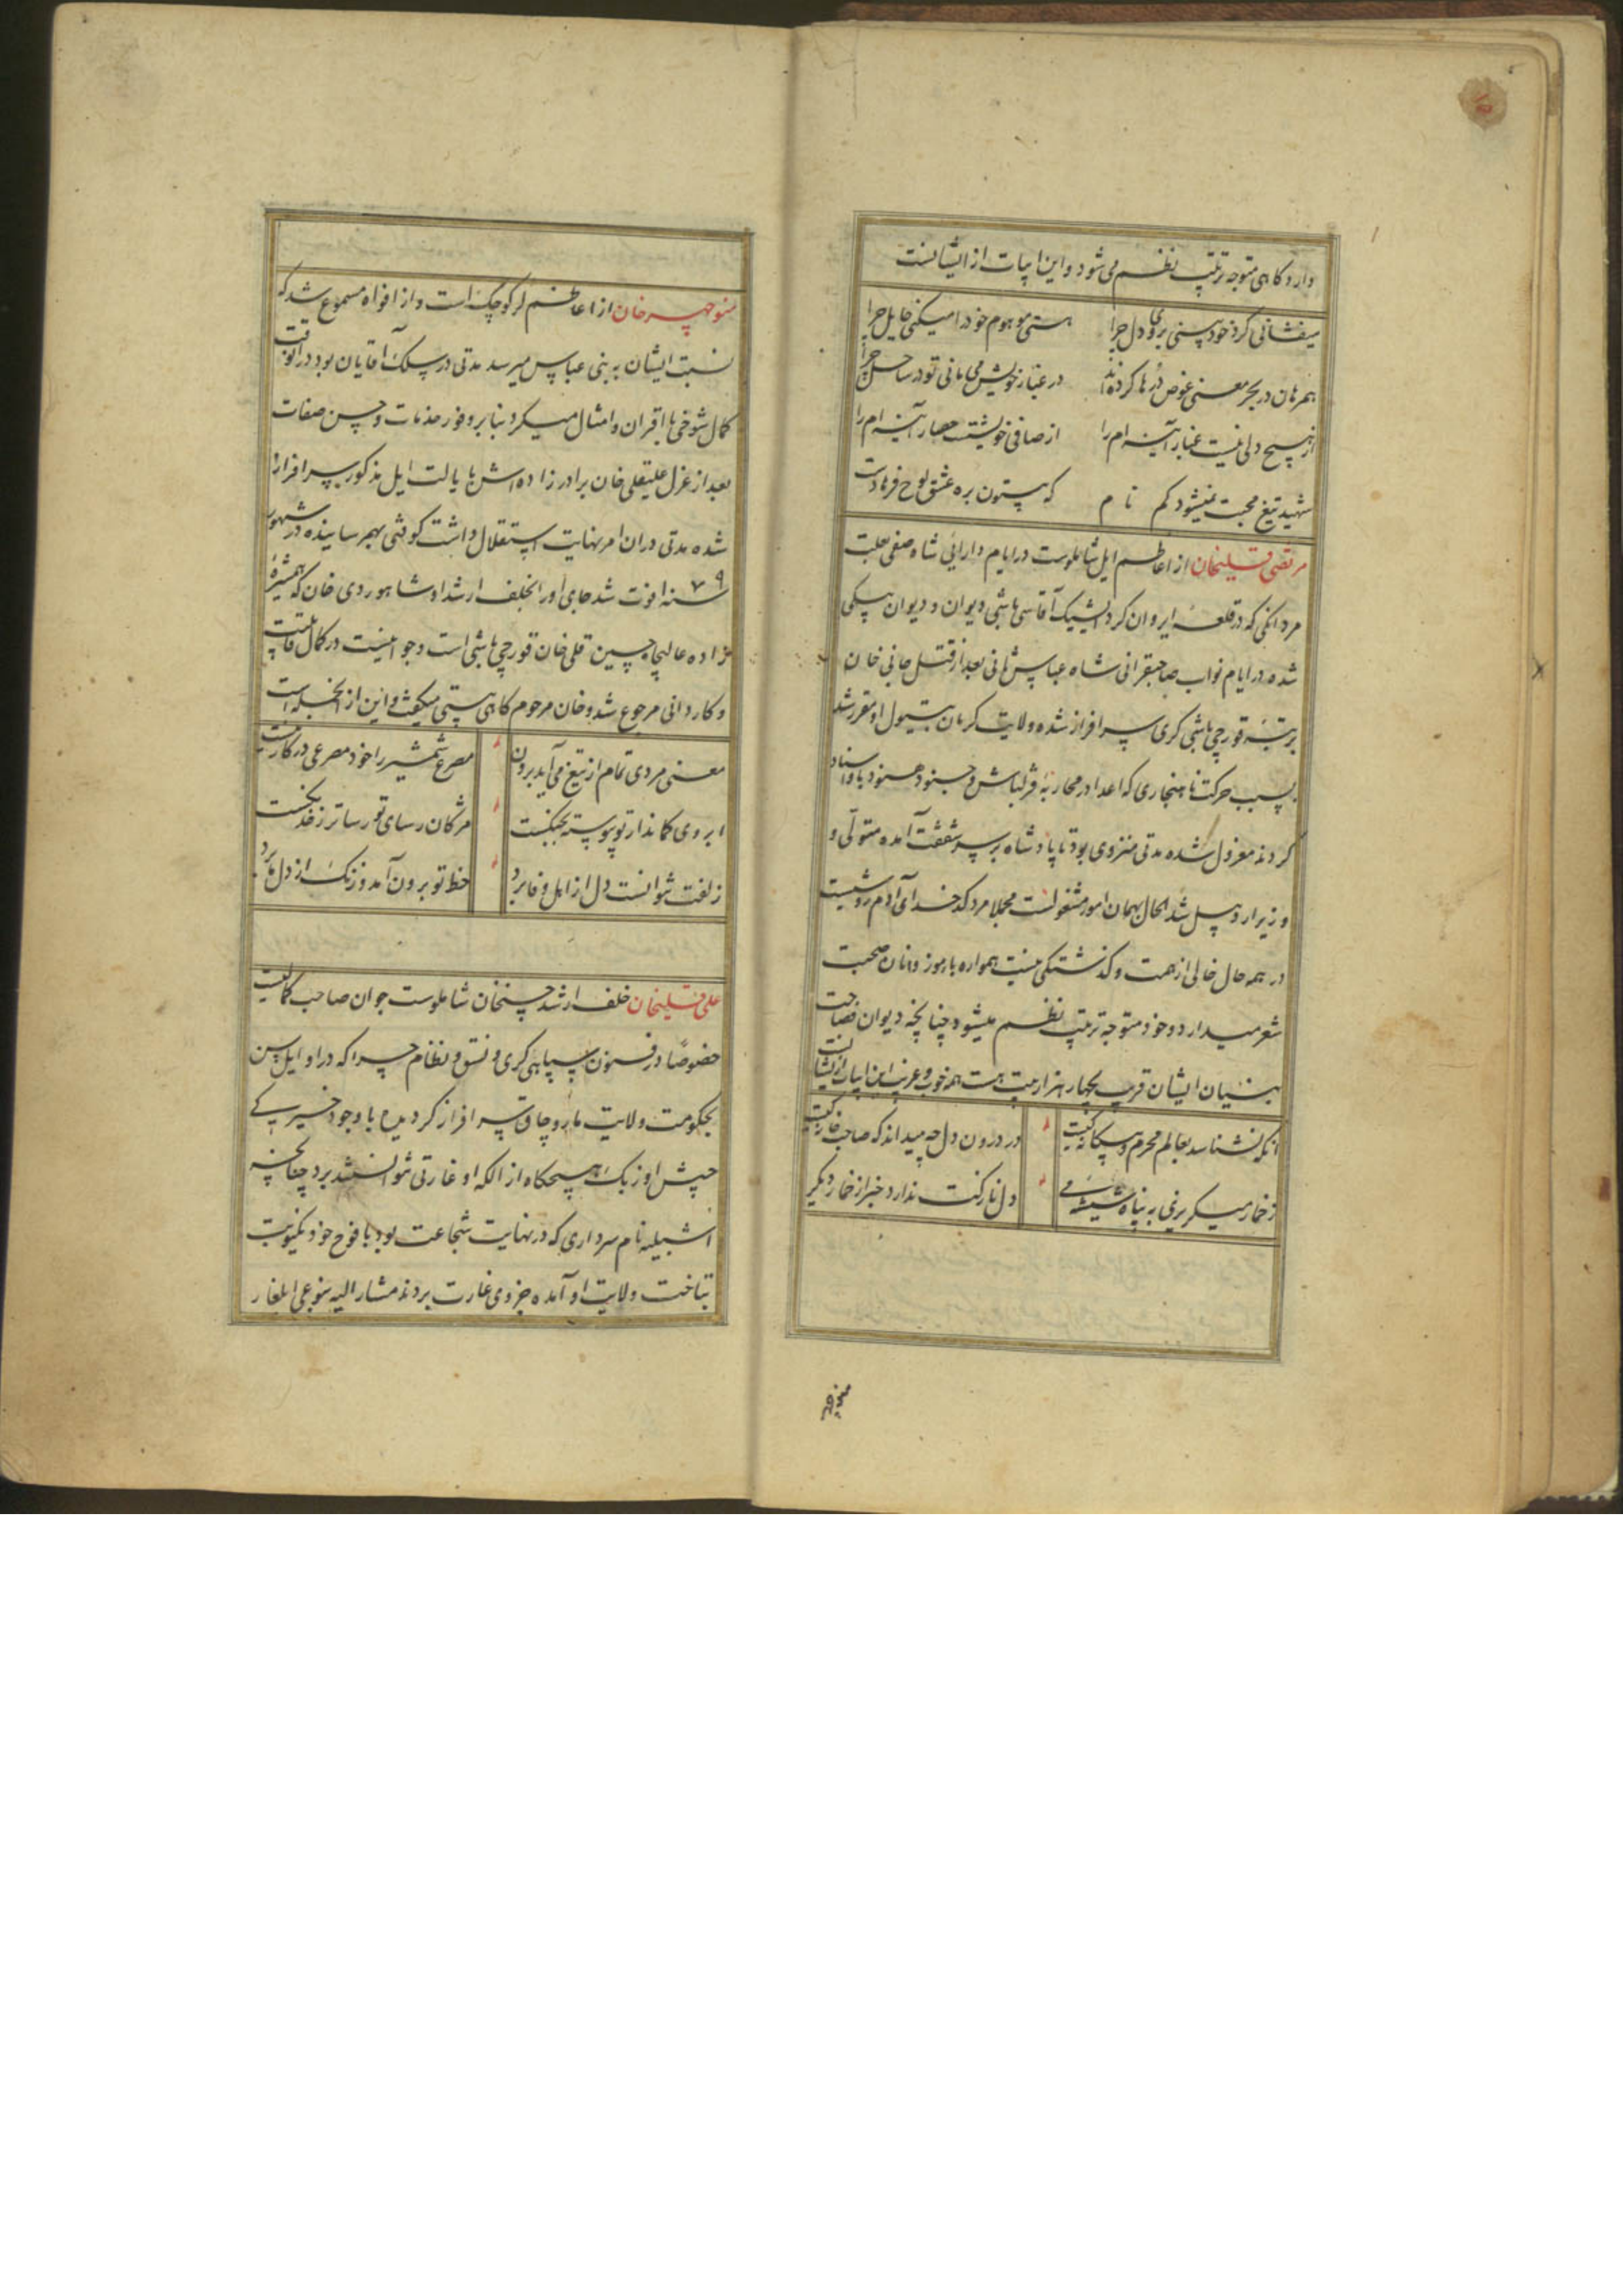 دارد گاهی متوجه ترتیب نظم می‌شود و این ابیات از ایشانست
میفشانی گرد خود بینی بروی دل چرا هستی موهوم خود را میکنی حایل چرا
همرهان در بحر معنی غوص درها کرده‌اند در غبار خویش می مانی تو در ساحل چرا
از هیچ دلی نیست غبار آینه ام را از صافی خویشست حصار آینه ام را
شهید تیغ محبت نمیشود کم نام که بیستون بره عشق لوح فرهادست
مرتضی قلیخان از اعاظم ایل شاملوست در ایام دارائی شاه صفی بعلت
مردانگی که در قلعه ایروان کرد ایشیک آقاسی باشی دیوان و دیوان بیکی
شده در ایام نواب صاحبقرانی شاه عباس ثانی بعد از قتل جانی خان
برتبه قورچی باشی کری سرافراز شده ولایت کرمان بتیول او مقرر شد
بسبب حرکت ناهنجاری که اعدا در محاربه قزلباش و جنود هنود باو اسناد
کردند معزول شده مدتی منزوی بود تا پادشاه بر سر شفقت آمده متولی و
وزیر اردبیل شد الحال بهمان امور مشغولست مجملا مرد کدخدای آدم روشیست
در همه حال خالی از همت و گذشتگی نیست همواره با رموز دانان صحبت
شعر میدارد و خود متوجه ترتیب نظم میشود چنانچه دیوان فصاحت
بنیان ایشان قریب بچهار هزار بیت هست همه خوب و غریب این ابیات از ایشانست
انکه نشناسد بعالم محرم و بیگانه کیست در درون دل چه میداند که صاحب خانه کیست
ز خمار میگریزی به پناه شیشه می دل نازکت ندارد خبر از خمار دیگر
منوچهر
منوچهر خان از اعاظم لر کوچک است و از افواه مسموع شد که
نسبت ایشان به بنی عباس میرسد مدتی در سلک آقایان بود در انوقت
کمال شوخی با اقران و امثال میکرد بنابر وفور خدمات و حسن صفات
بعد از عزل علیقلی خان برادر زاده اش بایالت ایل مذکور سرافراز
شده مدتی در ان امر نهایت استقلال داشت کوفتی بهم رسانیده در شهور
سنه ۱۰۷۹ فوت شد جای او را بخلف ارشد او شاهوردی خان که همشیره
زاده عالیجاه حسین قلی خان قورچی باشی است و جوانیست در کمال قابلیت
و کاردانی مرجوع شد و خان مرحوم گاهی بیتی میگفت و این از انجمله است
معنی مردی تمام از تیغ می آید برون مصرع شمشیر را خود مصرعی در کار نیست
ابروی کماندار تو پیوسته بجنگست مژگان رسای تو رساتر ز خدنگست
زلفت نتوانست دل از اهل وفا برد خط تو برون آمد و زنگ از دل ما برد
علی قلیخان خلف ارشد حسنخان شاملوست جوان صاحب کمالیست
خصوصا در فنون سپاهی کری و نسق و نظام چرا که در اوایل سن
بحکومت ولایت ماروچاق سرافراز کردیده با وجود خیرگی
جیش اوزبک هیچگاه از الکه او غارتی نتوانستند برد چنانچه
اشبیله نام سرداری که در نهایت شجاعت بود با فوج خود یکنوبت
بتاخت ولایت او آمده جزوی غارت بردند مشار الیه بنوعی ایلغار